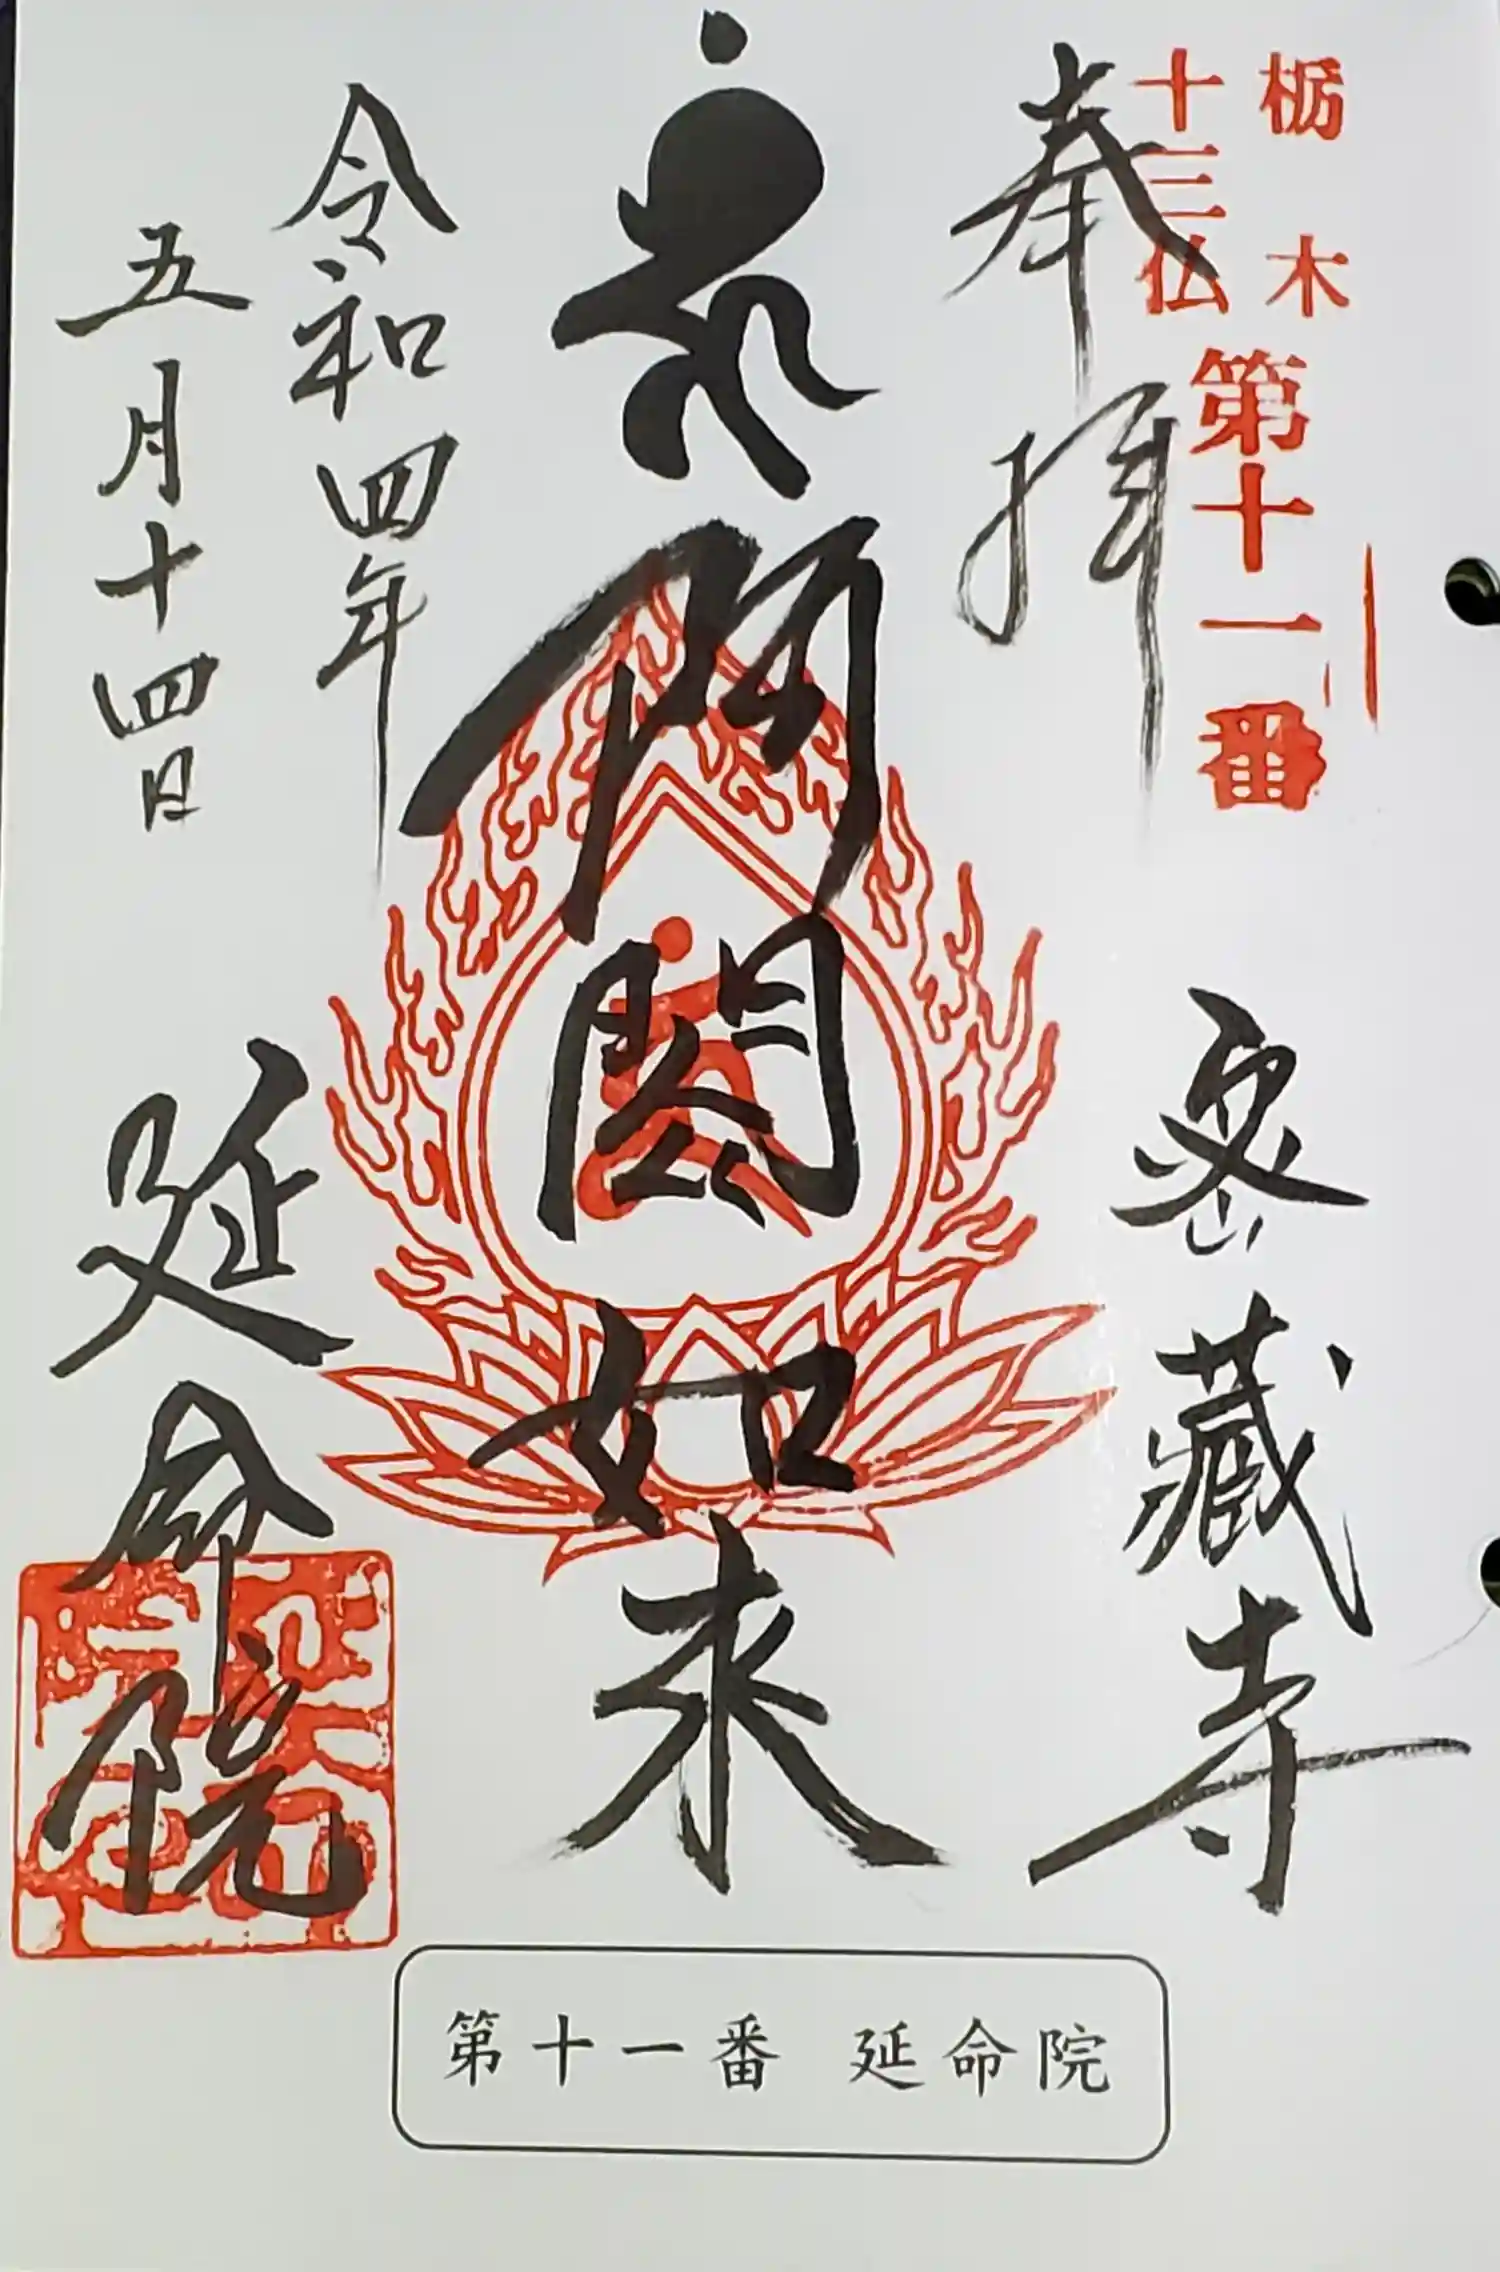 栃木
十三仏
第十一番
奉拝
密蔵寺
阿閦如来
令和四年
五月十四日
延命院
第十一番 延命院